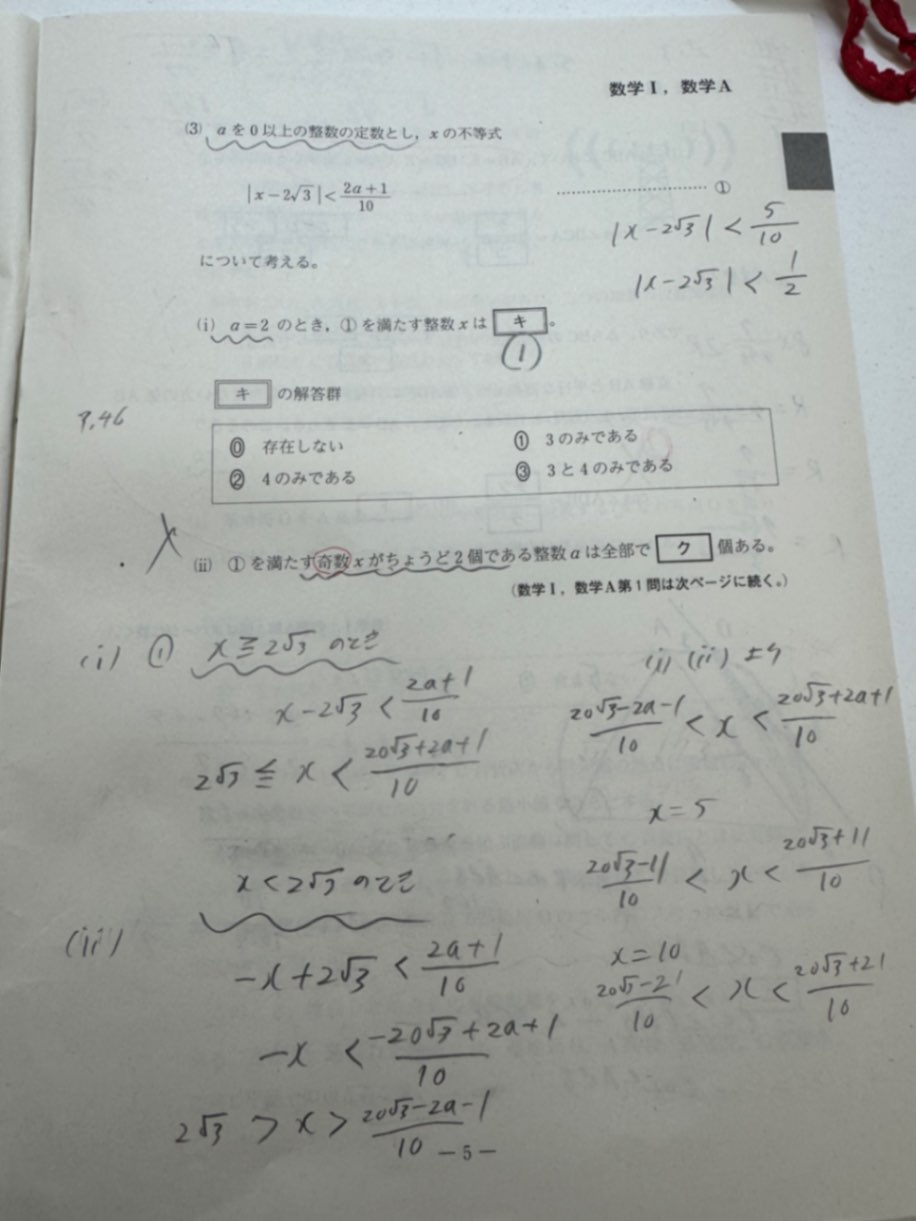 数学Ⅰ，数学A
(3) aを0以上の整数の定数とし，xの不等式
|x−2√3|<(2a+1)/10 ………………………… ①
|x−2√3| < 5/10
について考える。
|x−2√3| < 1/2
(i) a=2のとき，①を満たす整数xは キ 。
(1)
キ の解答群
⓪ 存在しない ① 3のみである
② 4のみである ③ 3と4のみである
(ii) ①を満たす奇数xがちょうど2個である整数aは全部で ク 個ある。
(数学Ⅰ，数学A第1問は次ページに続く。)
(i) ① x≧2√3 のとき
x−2√3 < (2a+1)/10
2√3 ≦ x < (20√3+2a+1)/10
x<2√3 のとき
(ii)
−x+2√3 < (2a+1)/10
−x < (−20√3+2a+1)/10
2√3 > x > (20√3−2a−1)/10
(i) (ii) より
(20√3−2a−1)/10 < x < (20√3+2a+1)/10
x=5
(20√3−11)/10 < x < (20√3+11)/10
x=10
< x < (20√3+21)/10
−5−